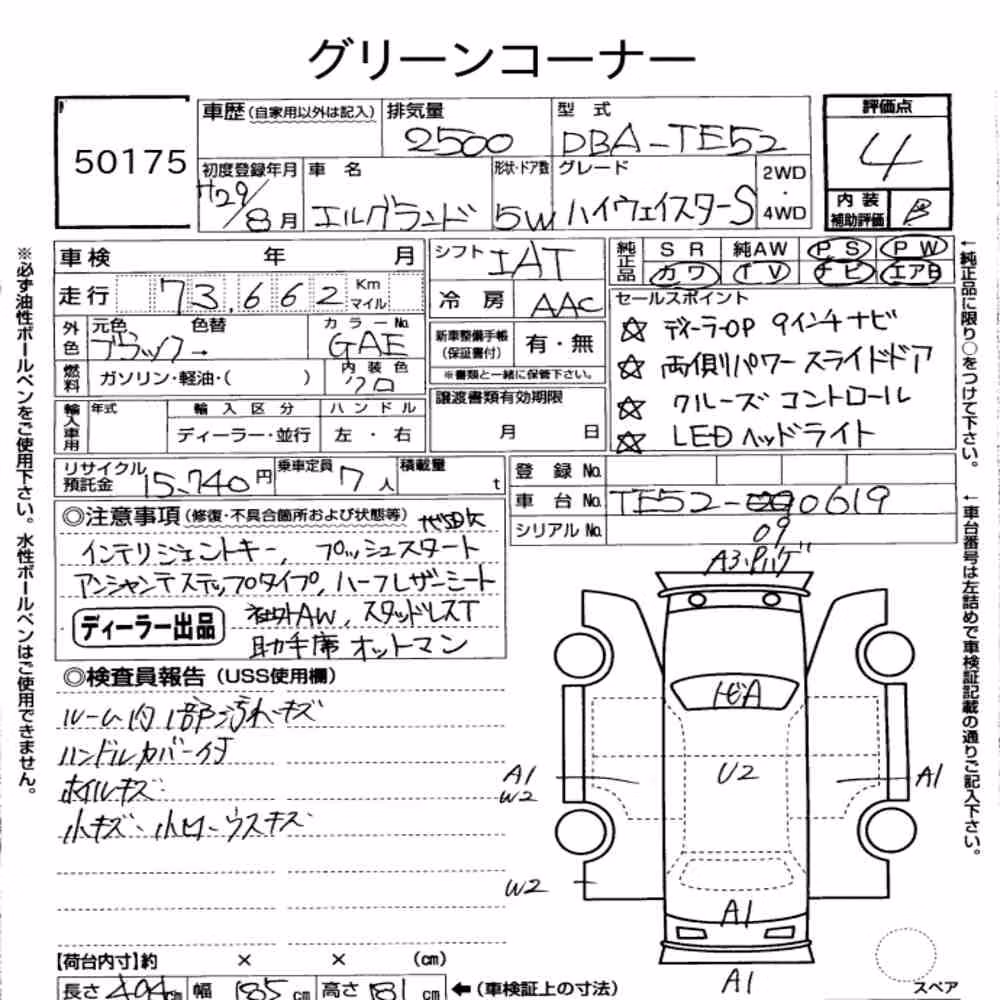 グリーンコーナー
50175
車歴(自家用以外は記入) 排気量 2500 型式 DBA-TE52
評価点 4
初度登録年月 H29/8月 車名 エルグランド 形状・ドア数 5W グレード ハイウェイスターS 2WD・4WD
内装補助評価 B
車検 年 月 シフト IAT 純正品 SR 純AW PS PW
走行 73,662 Km マイル 冷房 AAC カワ TV ナビ エアB
外色 元色 ブラック→ 色替 カラーNo. GAE 新車整備手帳(保証書付) 有・無
セールスポイント
☆ ディーラーOP 9インチナビ
☆ 両側パワースライドドア
☆ クルーズコントロール
☆ LEDヘッドライト
燃料 ガソリン・軽油・( ) 内装色 クロ ※書類と一緒に保管下さい。
輸入車用 年式 輸入区分 ハンドル 譲渡書類有効期限
ディーラー・並行 左・右 月 日
リサイクル預託金 15,740円 乗車定員 7人 積載量 t 登録No.
車台No. TE52-0619
09
シリアルNo.
◎注意事項(修復・不具合箇所および状態等)
インテリジェントキー, プッシュスタート
アンシャンテステップタイプ, ハーフレザーシート
ディーラー出品 社外AW, スタッドレスT
助手席オットマン
◎検査員報告(USS使用欄)
ルーム内1部汚れキズ
ハンドルカバー付
ホイルキズ
小キズ・小凹・ウスキズ
A3・Pハゲ
トビA
U2
A1
W2
A1
W2
A1
A1
スペア
【荷台内寸】約 × × (cm)
長さ 494cm 幅 185cm 高さ 181cm ←(車検証上の寸法)
※必ず油性ボールペンをご使用下さい。水性ボールペンはご使用できません。
←純正品に限り○をつけて下さい。
←車台番号は左詰めで車検証記載の通りご記入下さい。